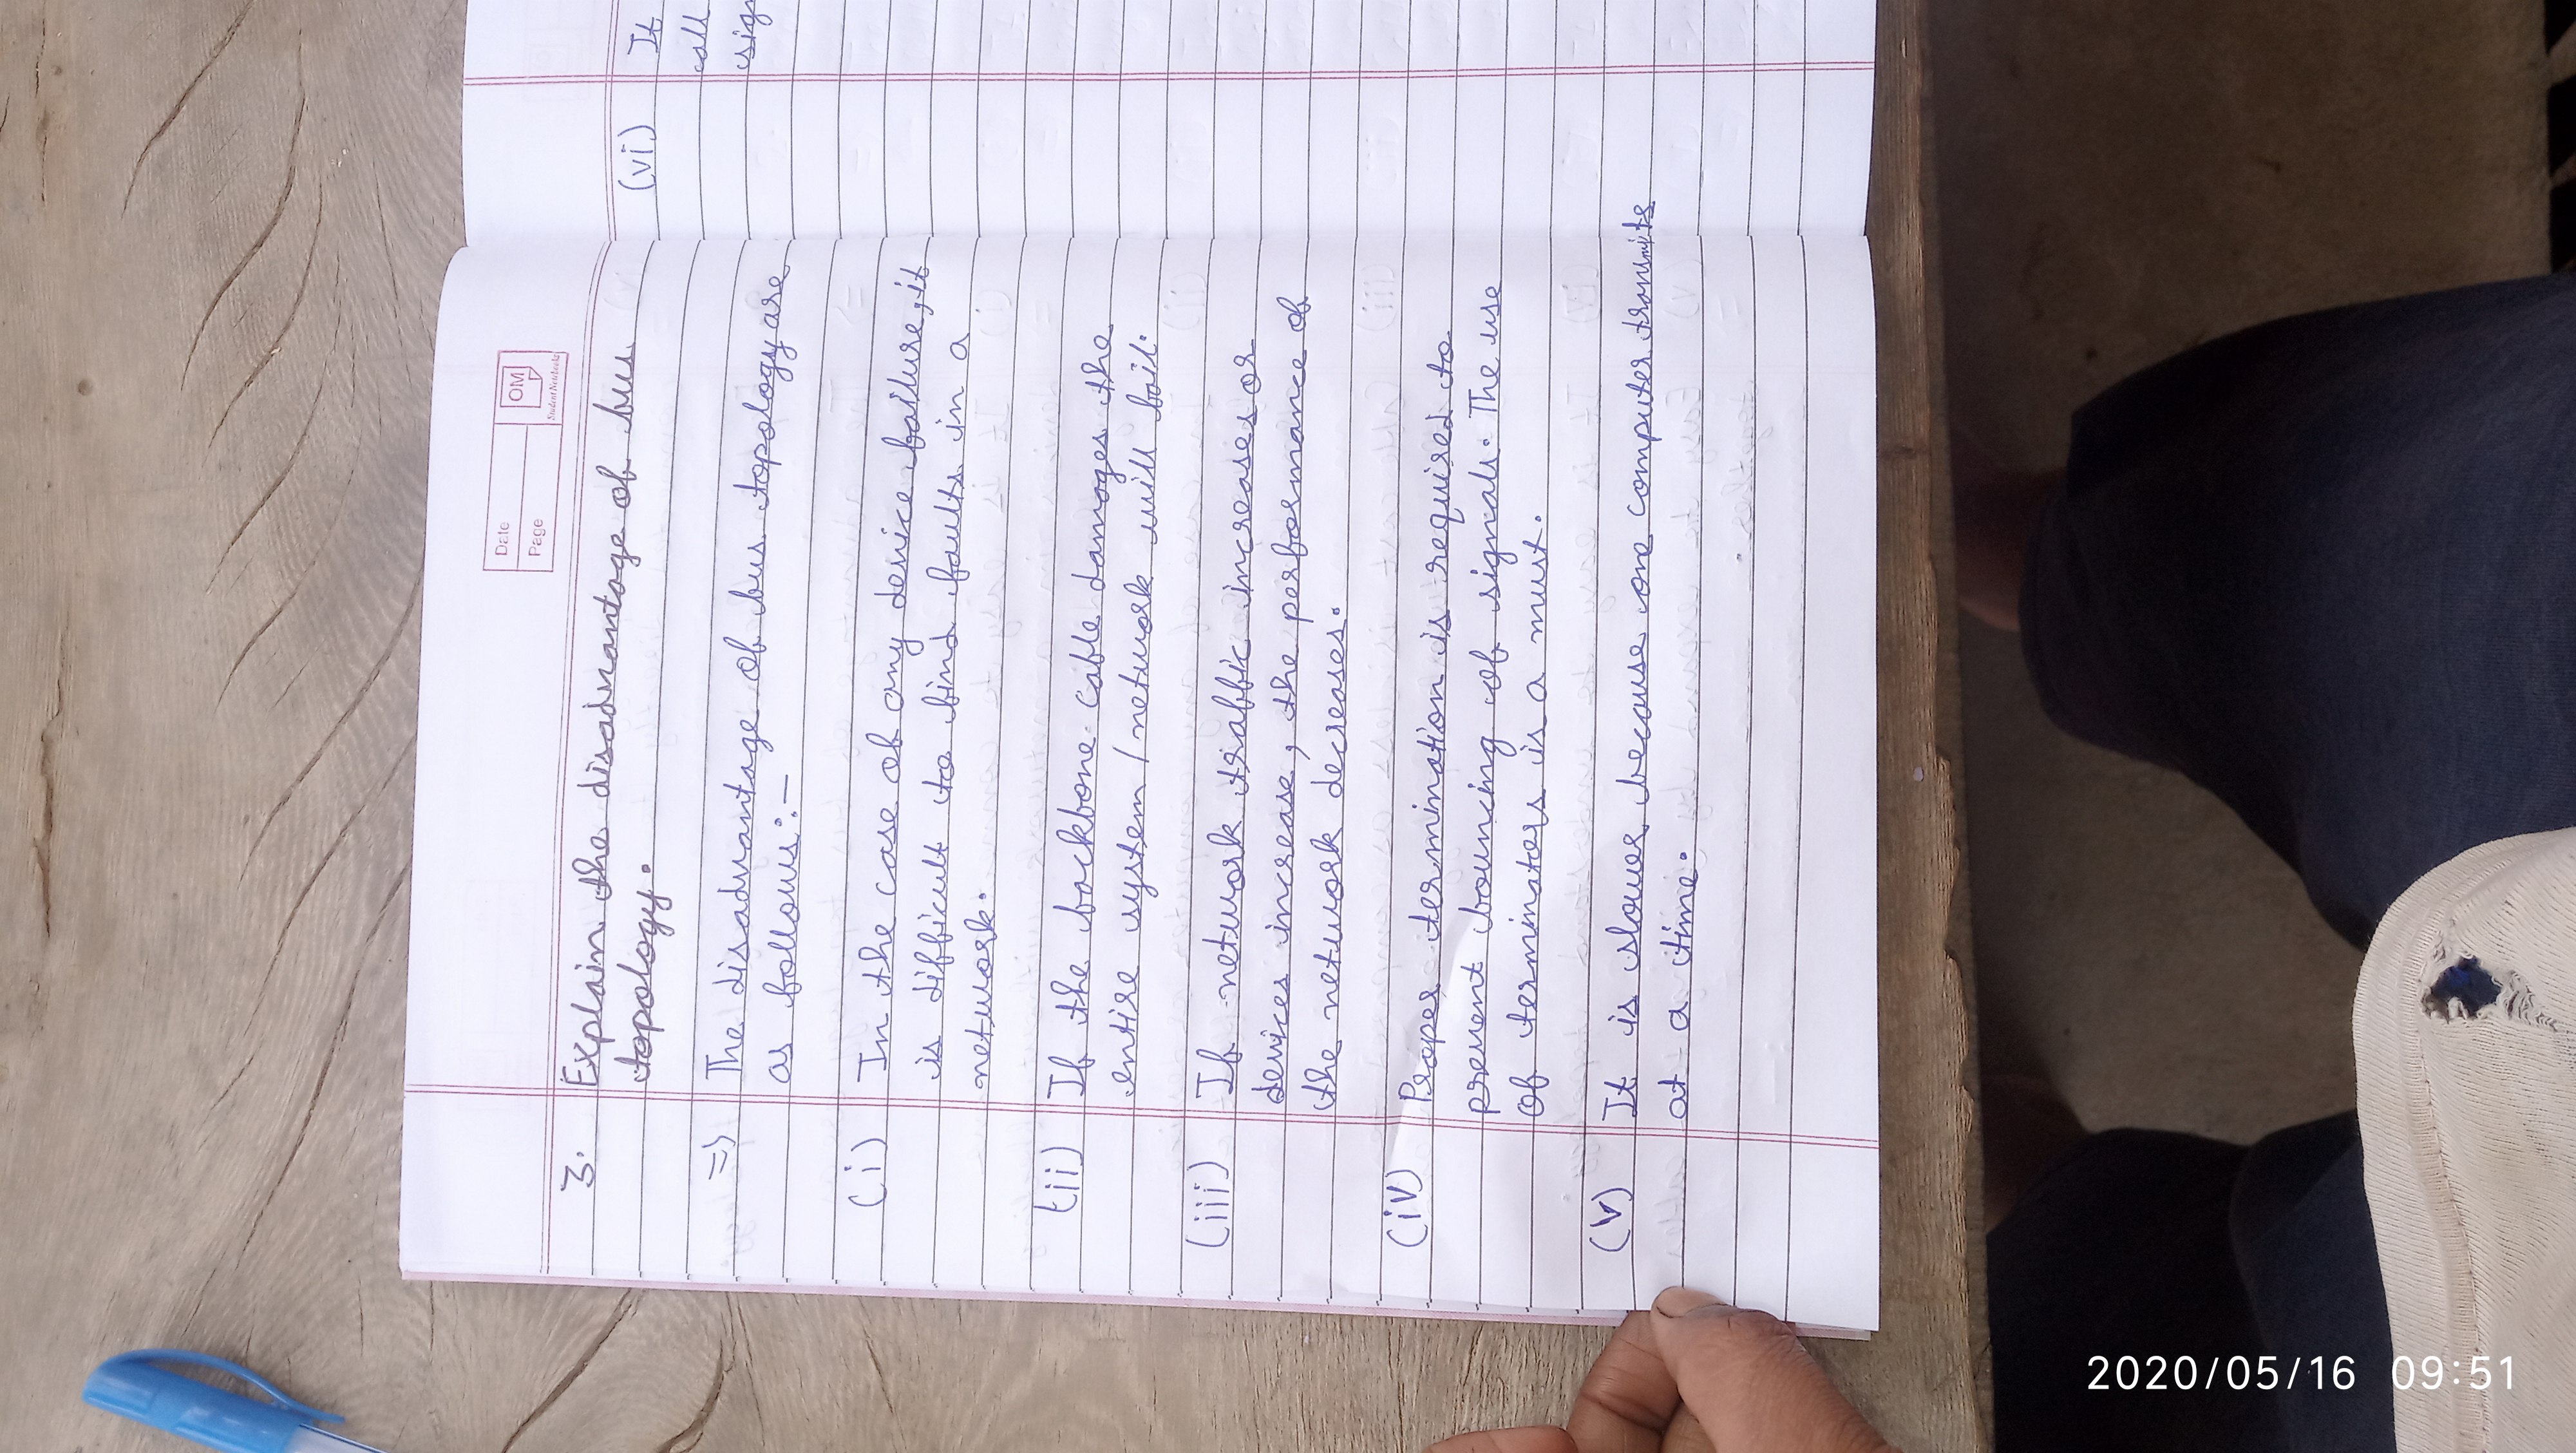 Date
Page
OM
Student Notebooks
3. Explain the disadvantage of bus
topology.
=> The disadvantage of bus topology are
as follows:-
(i) In the case of any device failure, it
is difficult to find faults in a
network.
(ii) If the backbone cable damages the
entire system / network will fail.
(iii) If network traffic increases or
devices increase, the performance of
the network decreases.
(iv) Proper termination is required to
prevent bouncing of signals. The use
of terminators is a must.
(v) It is slower because one computer transmits
at a time.
(vi) It
call
sign
2020/05/16 09:51